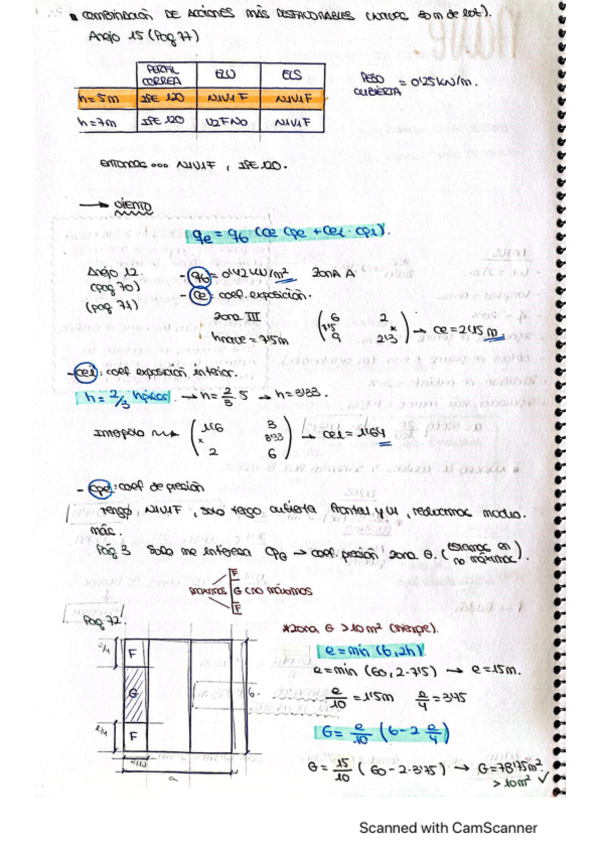 COMBINACIÓN DE ACCIONES MÁS DESFAVORABLES (NAVES 60 m de lot).
Anejo 15 (Pag 77)
PERFIL CORREA ELU ELS
h = 5m IPE 120 N1V1 F N1V1 F
h = 7m IPE 120 V2 F NO N1V1 F
PESO CUBIERTA = 0'25 kN/m.
entonces ... N1V1 F, IPE 120.
→ VIENTO
qe = qb (ce cpe + cei · cpi).
Anejo 12.
(pag 70)
(pag 71)
- qb = 0'42 kN/m² ZONA A
- ce = coef. exposición.
zona III
hnave = 7'5m
6 2
7'5 x
9 2'3
→ ce = 2'15 m
- cei: coef exposición interior.
h = 2/3 → h = 2/3 · 5 → h = 3'33.
Interpolo
1'6 3
x 3'33
2 6
→ cei = 1'64
- cpe: coef de presión
tengo, N1V1 F, solo tengo cubierta frontal y V1, reducimos mucho
más.
Pág 3 Solo me interesa CpG → coef. presión zona G. (Estamos en no máximos).
F
máximos G (no máximos
F
Pag 72.
*Zona G > 10 m² (siempre).
e = min (b, 2h)
e = min (60, 2·7'5) → e = 15m.
e/10 = 1'5m e/4 = 3'75
G = e/10 (b - 2 e/4)
G = 15/10 (60 - 2·3'75) → G = 78'75m².
> 10m² ✓
e/4
F
G
F
e/4
e/10
b.
a
Scanned with CamScanner